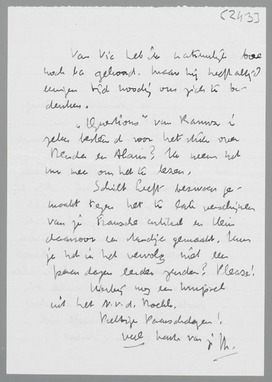 (243)
Van Vic heb ik natuurlijk boe
noch ba gehoord. Maar hij heeft altijd
eenigen tijd noodig om zich te be-
denken.
"Questions" van Ramuz is
zeker bestemd voor het stuk over
Benda en Alain? Ik neem het
nu mee om het te lezen.
Schilt heeft bezwaar ge-
maakt tegen het te late verschijnen
van je Fransche artikel en klein
daarvoor en standje gemaakt. Kun
je het in het vervolg niet een
paar dagen eerder zenden? Please!
Hierbij nog een knipsel
uit het v.d. Nacht.
Prettige Paaschdagen!
veel harts van je M.